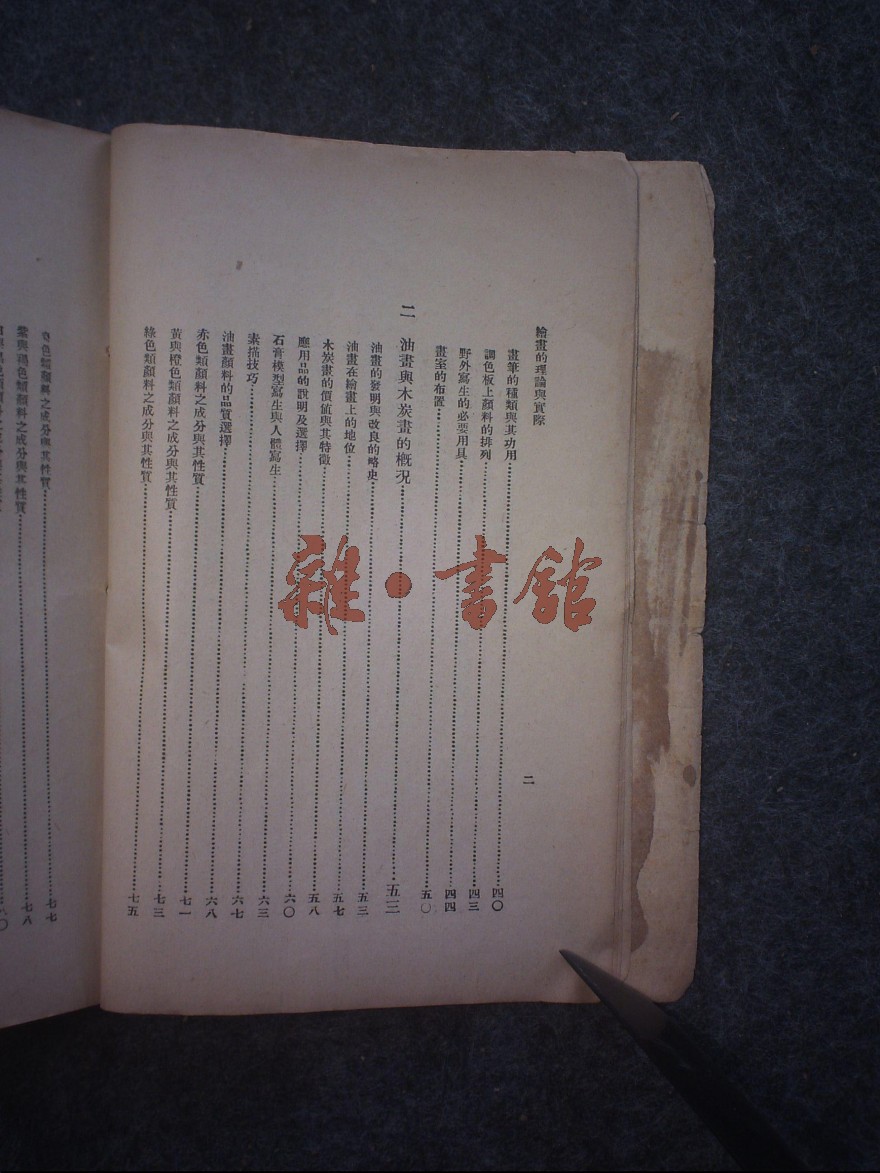 繪畫的理論與實際
二
畫筆的種類與其功用 四〇
調色板上顏料的排列 四三
野外寫生的必要用具 四四
畫室的布置 五〇
二 油畫與木炭畫的概況 五三
油畫的發明與改良的略史 五三
油畫在繪畫上的地位 五七
木炭畫的價値與其特徵 五八
應用品的說明及選擇 六〇
石膏模型寫生與人體寫生 六三
素描技巧 六七
油畫顏料的品質選擇 六八
赤色類顏料之成分與其性質 七一
黃與橙色類顏料之成分與其性質 七三
綠色類顏料之成分與其性質 七五
色類顏料之成分與其性質 七七
紫與褐色類顏料之成分與其性質 七八
雜·書館